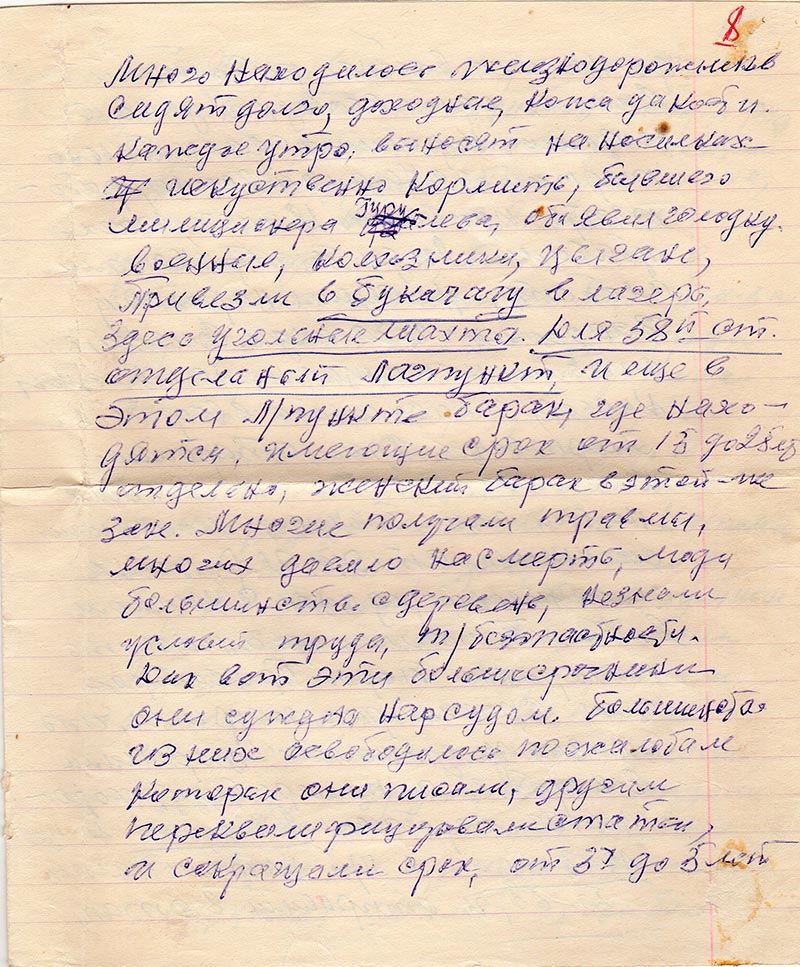 8
Много находилось железнодорожников
сидят долго, доходные, кожа да кости.
каждое утро, выносят на носилках
искуственно кормить, бывшего
милиционера Гуру лева, объявил голодку.
военные, колхозники, цыгане,
Привезли в Букачачу в лагерь,
здесь угольная шахта. Для 58й ст.
отдельный лагпункт, и еще в
этом л/пункте барак, где нахо-
дятся, имеющие срок от 15 до 25 лет
отделено, женский барак в этой-же
зоне. Многие получали травмы,
многих давило насмерть, люди
большинство с деревень, незнали
условий труда, т/безопасности.
Так вот эти большесрочники
они суждена нарсудом. Большинство
из них освободилось по жалобам
которые они писали, другим
переквалифицировали статьи,
и сокращали срок, от 37 до 5 лет